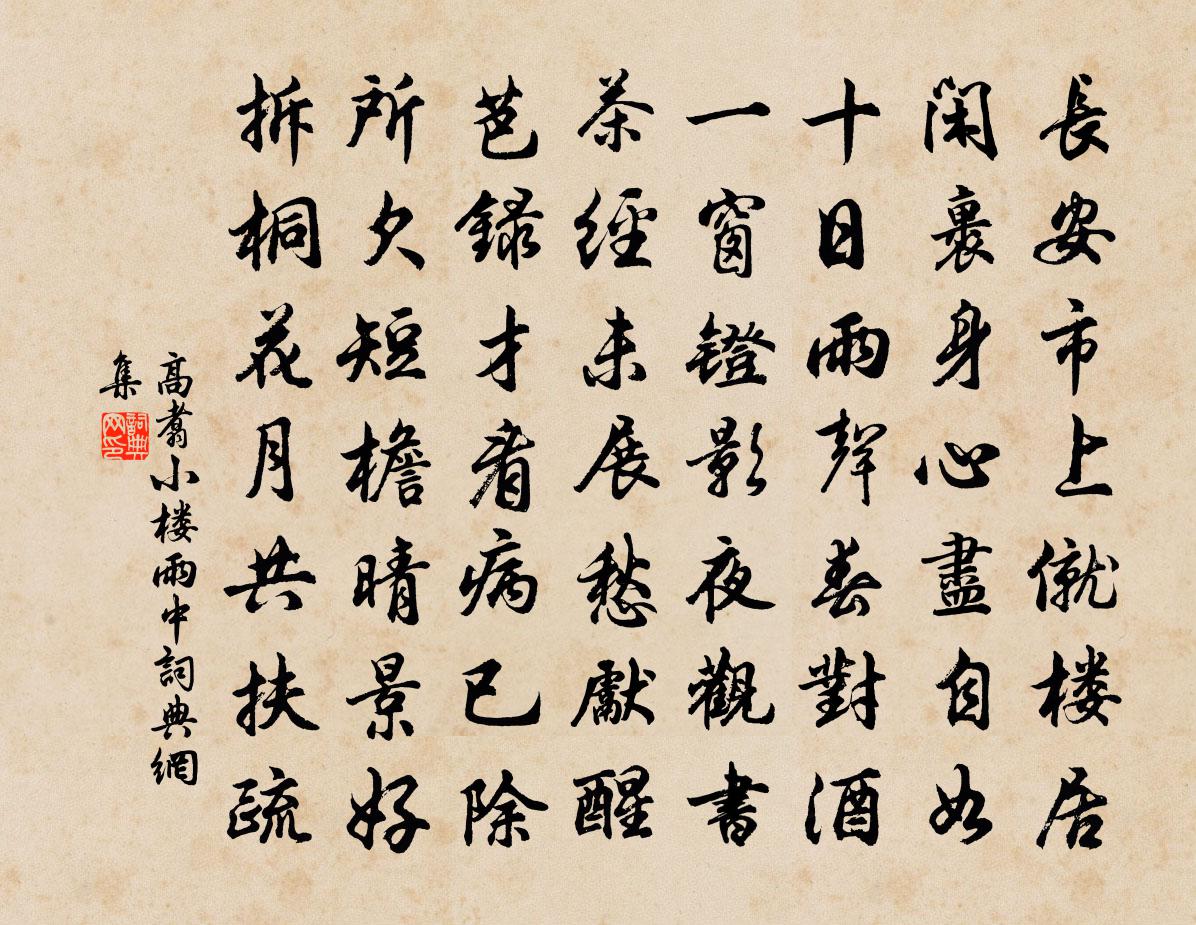 長安市上僦楼居
閑裏身心盡自如
十日雨聲春對酒
一窗鐙影夜觀書
茶經未展愁獻醒
芭録才看病已除
所欠短檐晴景好
拆桐花月共扶疏
高翥小楼雨中詞典網
集
詞典网印